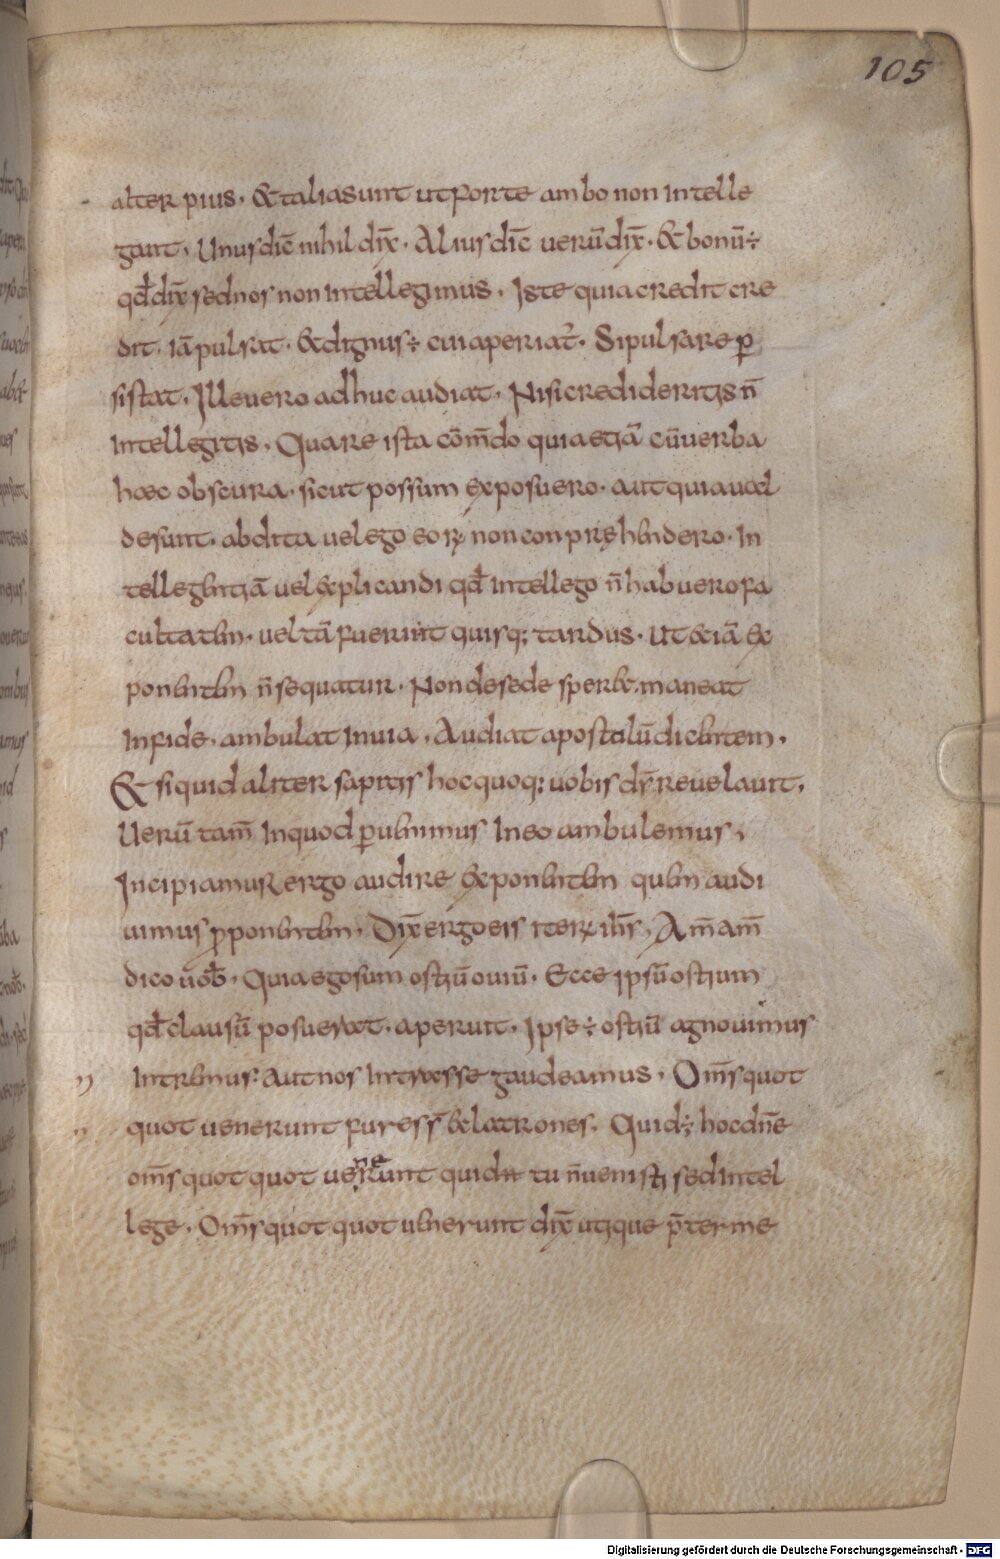 105
alter pius. & talia sunt ut forte ambo non intelle
gant. Unus dic̄ nihil dix̄. Alius dic̄ uerū dix̄. & bonū ÷
qd̄ dix̄ sed nos non intellegimus. Iste quia credit cre
dit. iā pulsat. & dignus ÷ cui aperiat᷑. Si pulsare p̲
sistat. Ille uero adhuc audiat. Nisi credideritis n̄
intellegitis. Quare ista cōm̄do quia etiā cū uerba
hæc obscura. sicut possum exposuero. aut quia uæl
desunt. abdita uel ego eoꝝ non conpręhendero. In
tellegentiā uel explicandi qd̄ intellego n̄ habuero fa
cultatem. uel tā fuerint quisq; tardus. ut & iā ex
ponentem n̄ sequatur. Non desede sper&. maneat
In fide. ambulat In uia. Audiat apostolū dicentem.
& si quid aliter sapitis hoc quoq; uobis dr̄ reuelauit.
Uerū tam̄ Inquod p̲uenimus In eo ambulemus,
Incipiamur ergo audire exponentem quem audi
uimus ꝓponentem. Dix̄ ergo eis iteꝝ ih̄s, Am̄ am̄
dico uob̄. Quia ego sum ostiū ouiū. Ecce ipsū ostium
qd̄ clausū posueræt. aperuit. Ipse ÷ ostiū agnouimus
Intremus. Aut nos Intræsse gaudeamus. Om̄s quot
quot uenerunt fures s̄ & latrones. Quid ÷ hoc dn̄e
om̄s quot quot uenerunt quid tu n̄ uenisti sed intel
lege. Om̄s quot quot uenerunt dix̄ utique p̄ter me
Digitalisierung gefördert durch die Deutsche Forschungsgemeinschaft - DFG